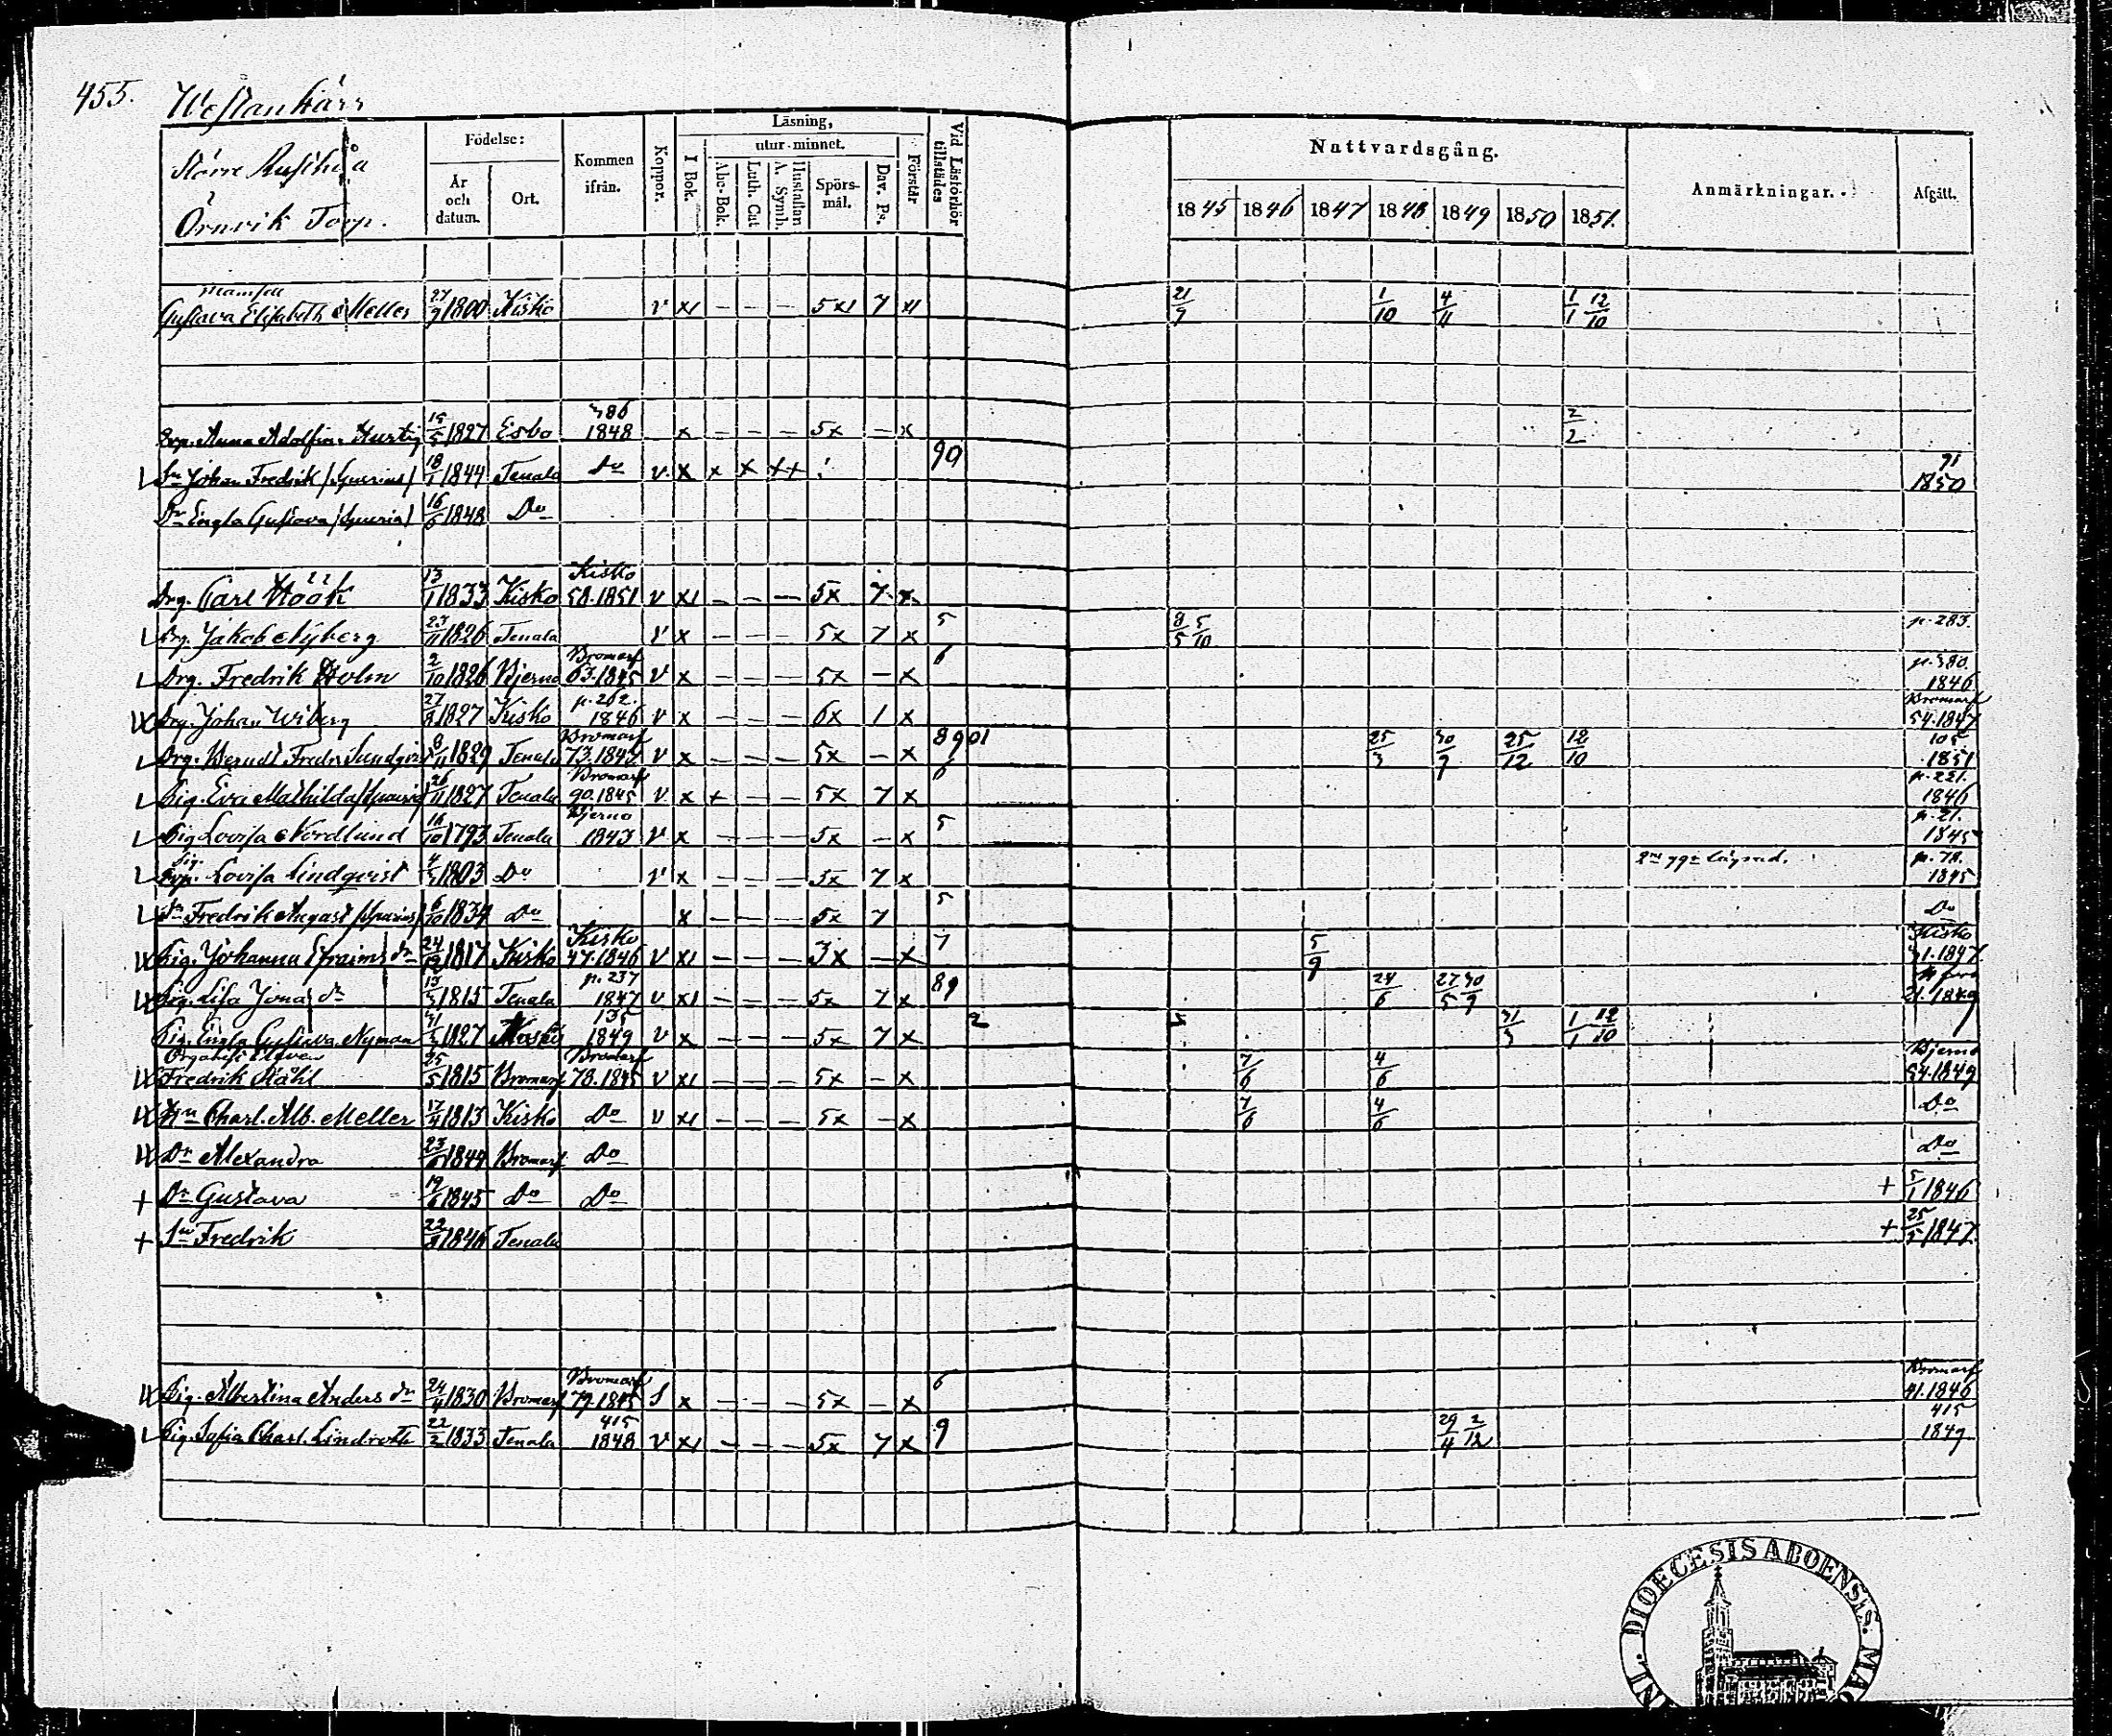 455. Westankärr
Större Rusthåll
Örnvik Torp.
Födelse:
År och datum.
Ort.
Kommen ifrån.
Koppor.
Läsning,
I Bok.
utur minnet.
Abc-Bok.
Luth. Cat
A. Symb.
Hustaflan
Spörsmål.
Dav. Ps.
Förstår
Vid Läsförhör tillstädes
Nattvardsgång.
1845 1846 1847 1848 1849 1850 1851.
Anmärkningar.
Afgått.
Mamsell
Gustava Elisabeth Meller 27/9 1800 Kisko v x1 — — — 5x1 7 x1 21/9 1/10 4/11 1/1 12/10
386
Anna Adolfina Hurtig 15/5 1827 Esbo 1848 x — — — 5x — x 2/2
Sn Johan Fredrik /Spurius/ 18/1 1844 Tenala Do v x x x xx 90 91 1850
Dr Engla Gustava /Spuria/ 16/6 1848 Do
Drg. Carl Höök 13/1 1833 Kisko Kisko 58.1851 v x1 — — — 5x 7 x
Drg. Jakob Nyberg 23/11 1826 Tenala v x — — — 5x 7 x 5 8/5 5/10 p. 283.
Drg. Fredrik Holm 2/10 1826 Bjerno Bromarf 63.1845 v x — — — 5x — x 6 p. 380. 1846
Drg. Johan Wiberg 27/8 1827 Kisko p. 262. 1846 v x — — — 6x 1 x Bromarf 54.1847
Drg. Berndt Fredr. Sundqvist 8/11 1829 Tenala Bromarf 73.1847 v x — — — 5x — x 8901 25/3 30/9 25/12 12/10 105 1851
Pig. Eva Mathilda /Spuria/ 26/11 1827 Tenala Bromarf 90.1845 v x + — — 5x 7 x 6 p. 221. 1846
Pig. Lovisa Nordlund 16/10 1793 Tenala Bjerno 1843 v x — — — 5x — x 5 p. 21. 1845
Pig. Lovisa Lindqvist 4/3 1803 Do v x — — — 5x 7 x p. 78. 1845
Sn Fredrik August /Spurius/ 6/10 1834 Do x — — — 5x 7 5 Do
Pig. Johanna Efraims dr 24/12 1817 Kisko Kisko 47.1846 v x1 — — — 3x — x 7 5/9 Kisko 31.1847
Pig. Lisa Jonas dr 13/3 1815 Tenala p. 237 1847 v x1 — — — 5x 7 x 89 24/6 27/5 30/9 21.1849
Pig. Engla Gustava Nyman 31/3 1827 Kisko 135 1849 v x — — — 5x 7 x 2 31/3 1/1 12/10
Organist Eleven
Fredrik Ståhl 25/5 1815 Bromarf Bromarf 78.1845 v x1 — — — 5x — x 7/6 4/6 Bjerno 54.1849
Hu Charl. Alb. Meller 17/4 1813 Kisko Do v x1 — — — 5x — x 7/6 4/6 Do
Dr Alexandra 23/6 1844 Bromarf Do Do
+ Dr Gustava 19/6 1845 Do Do + 5/1 1846
+ Sn Fredrik 22/8 1846 Tenala + 25/5 1847.
Pig. Albertina Anders dr 24/4 1830 Bromarf Bromarf 79.1845 S x — — — 5x — x 6 Bromarf 41.1846
Pig. Sofia Charl. Lindroth 22/2 1833 Tenala 415 1848 v x1 — — — 5x 7 x 9 29/4 2/12 415 1849
DIOECESIS ABOENSIS.